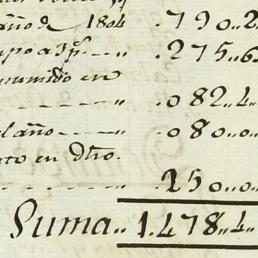 año de 1804 .790..2
mpo a 3p.s .275..6
sumido en
" .082..4..
l año ..... .080..0..
to en dho.
.150..0..
Suma.. 1.478..4..